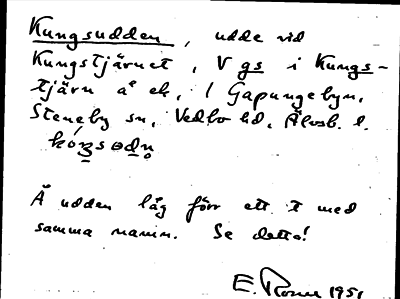 Kungsudden, udde vid
Kungstjärnet, V gs i Kungs-
tjärn å ek, / Gapungebyn,
Steneby sn, Vedbo hd, Älvsb. l.
Å udden låg förr ett t med
samma namn. Se detta!
E. 1951